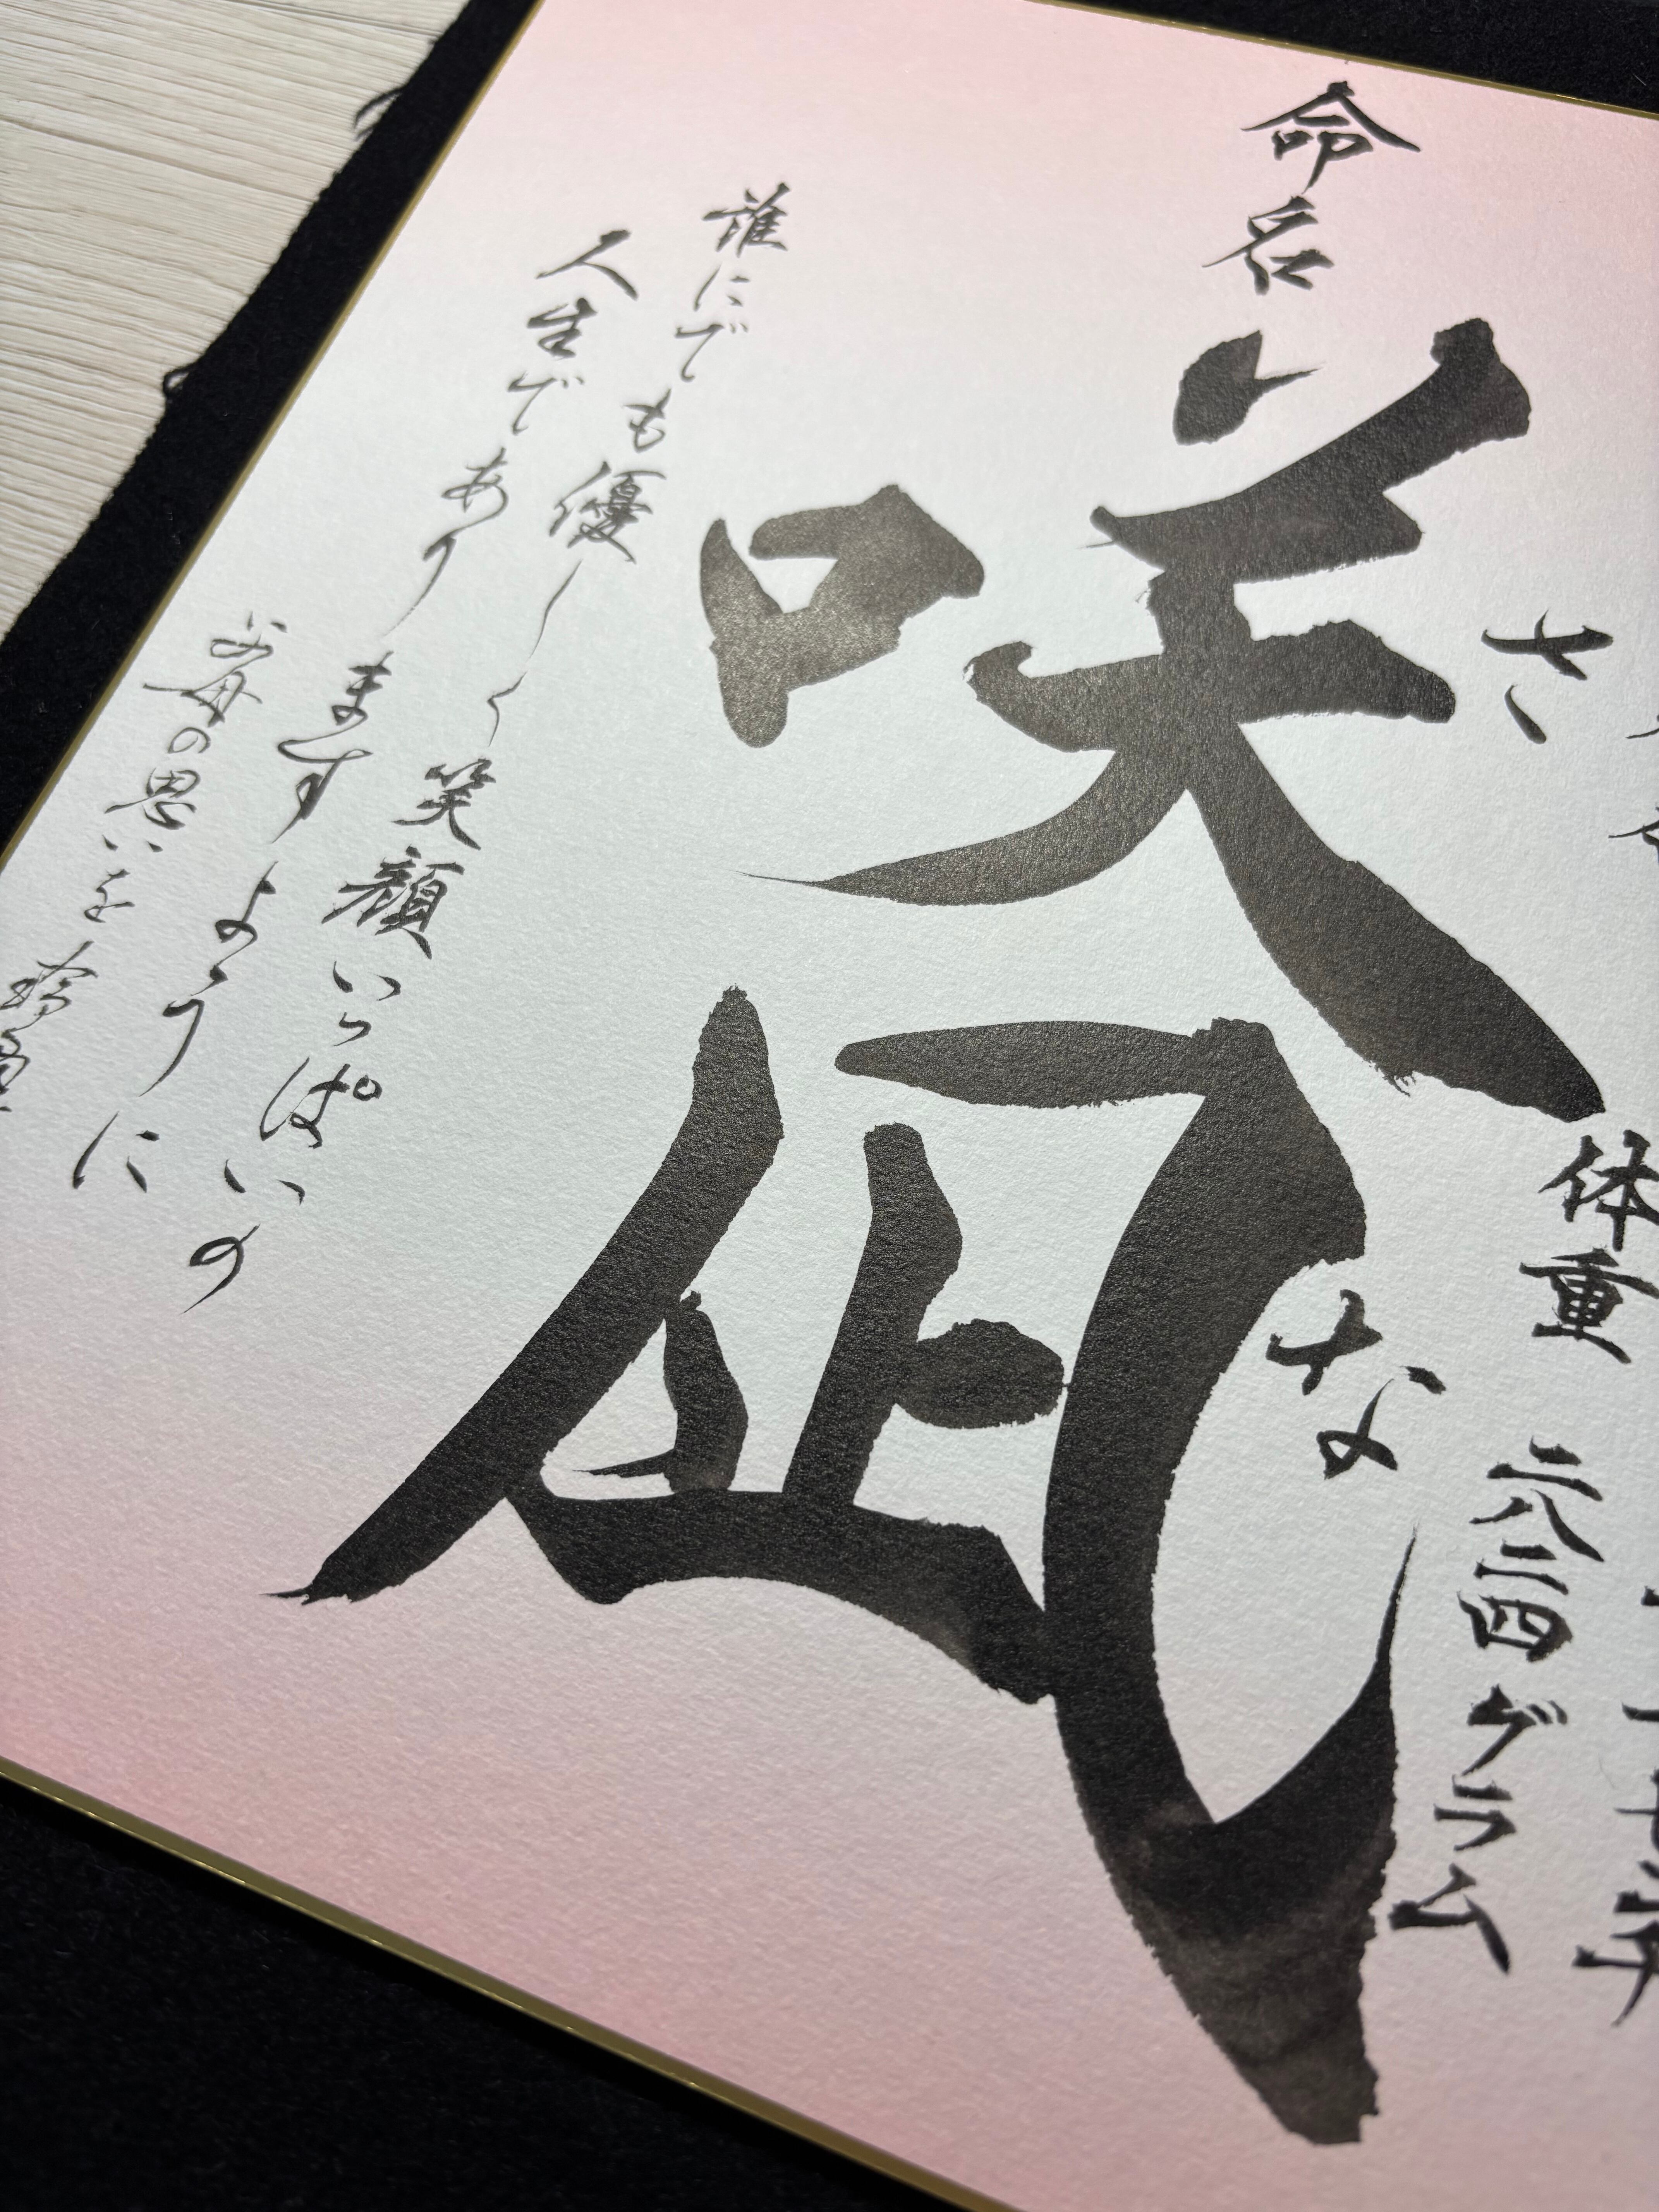 七年
体重 二八二四グラム
さな
命名 咲凪
誰にでも優しく笑顔いっぱいの
人生でありますように
父母の思いを